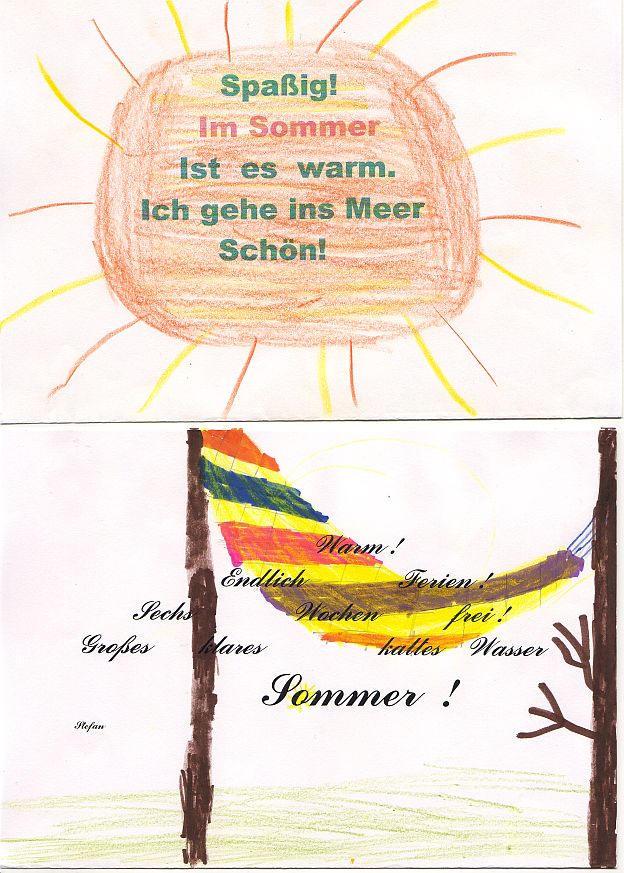 Spaßig!
Im Sommer
Ist es warm.
Ich gehe ins Meer
Schön!
Warm !
Endlich Ferien !
Sechs Wochen frei !
Großes klares kaltes Wasser
Sommer !
Stefan